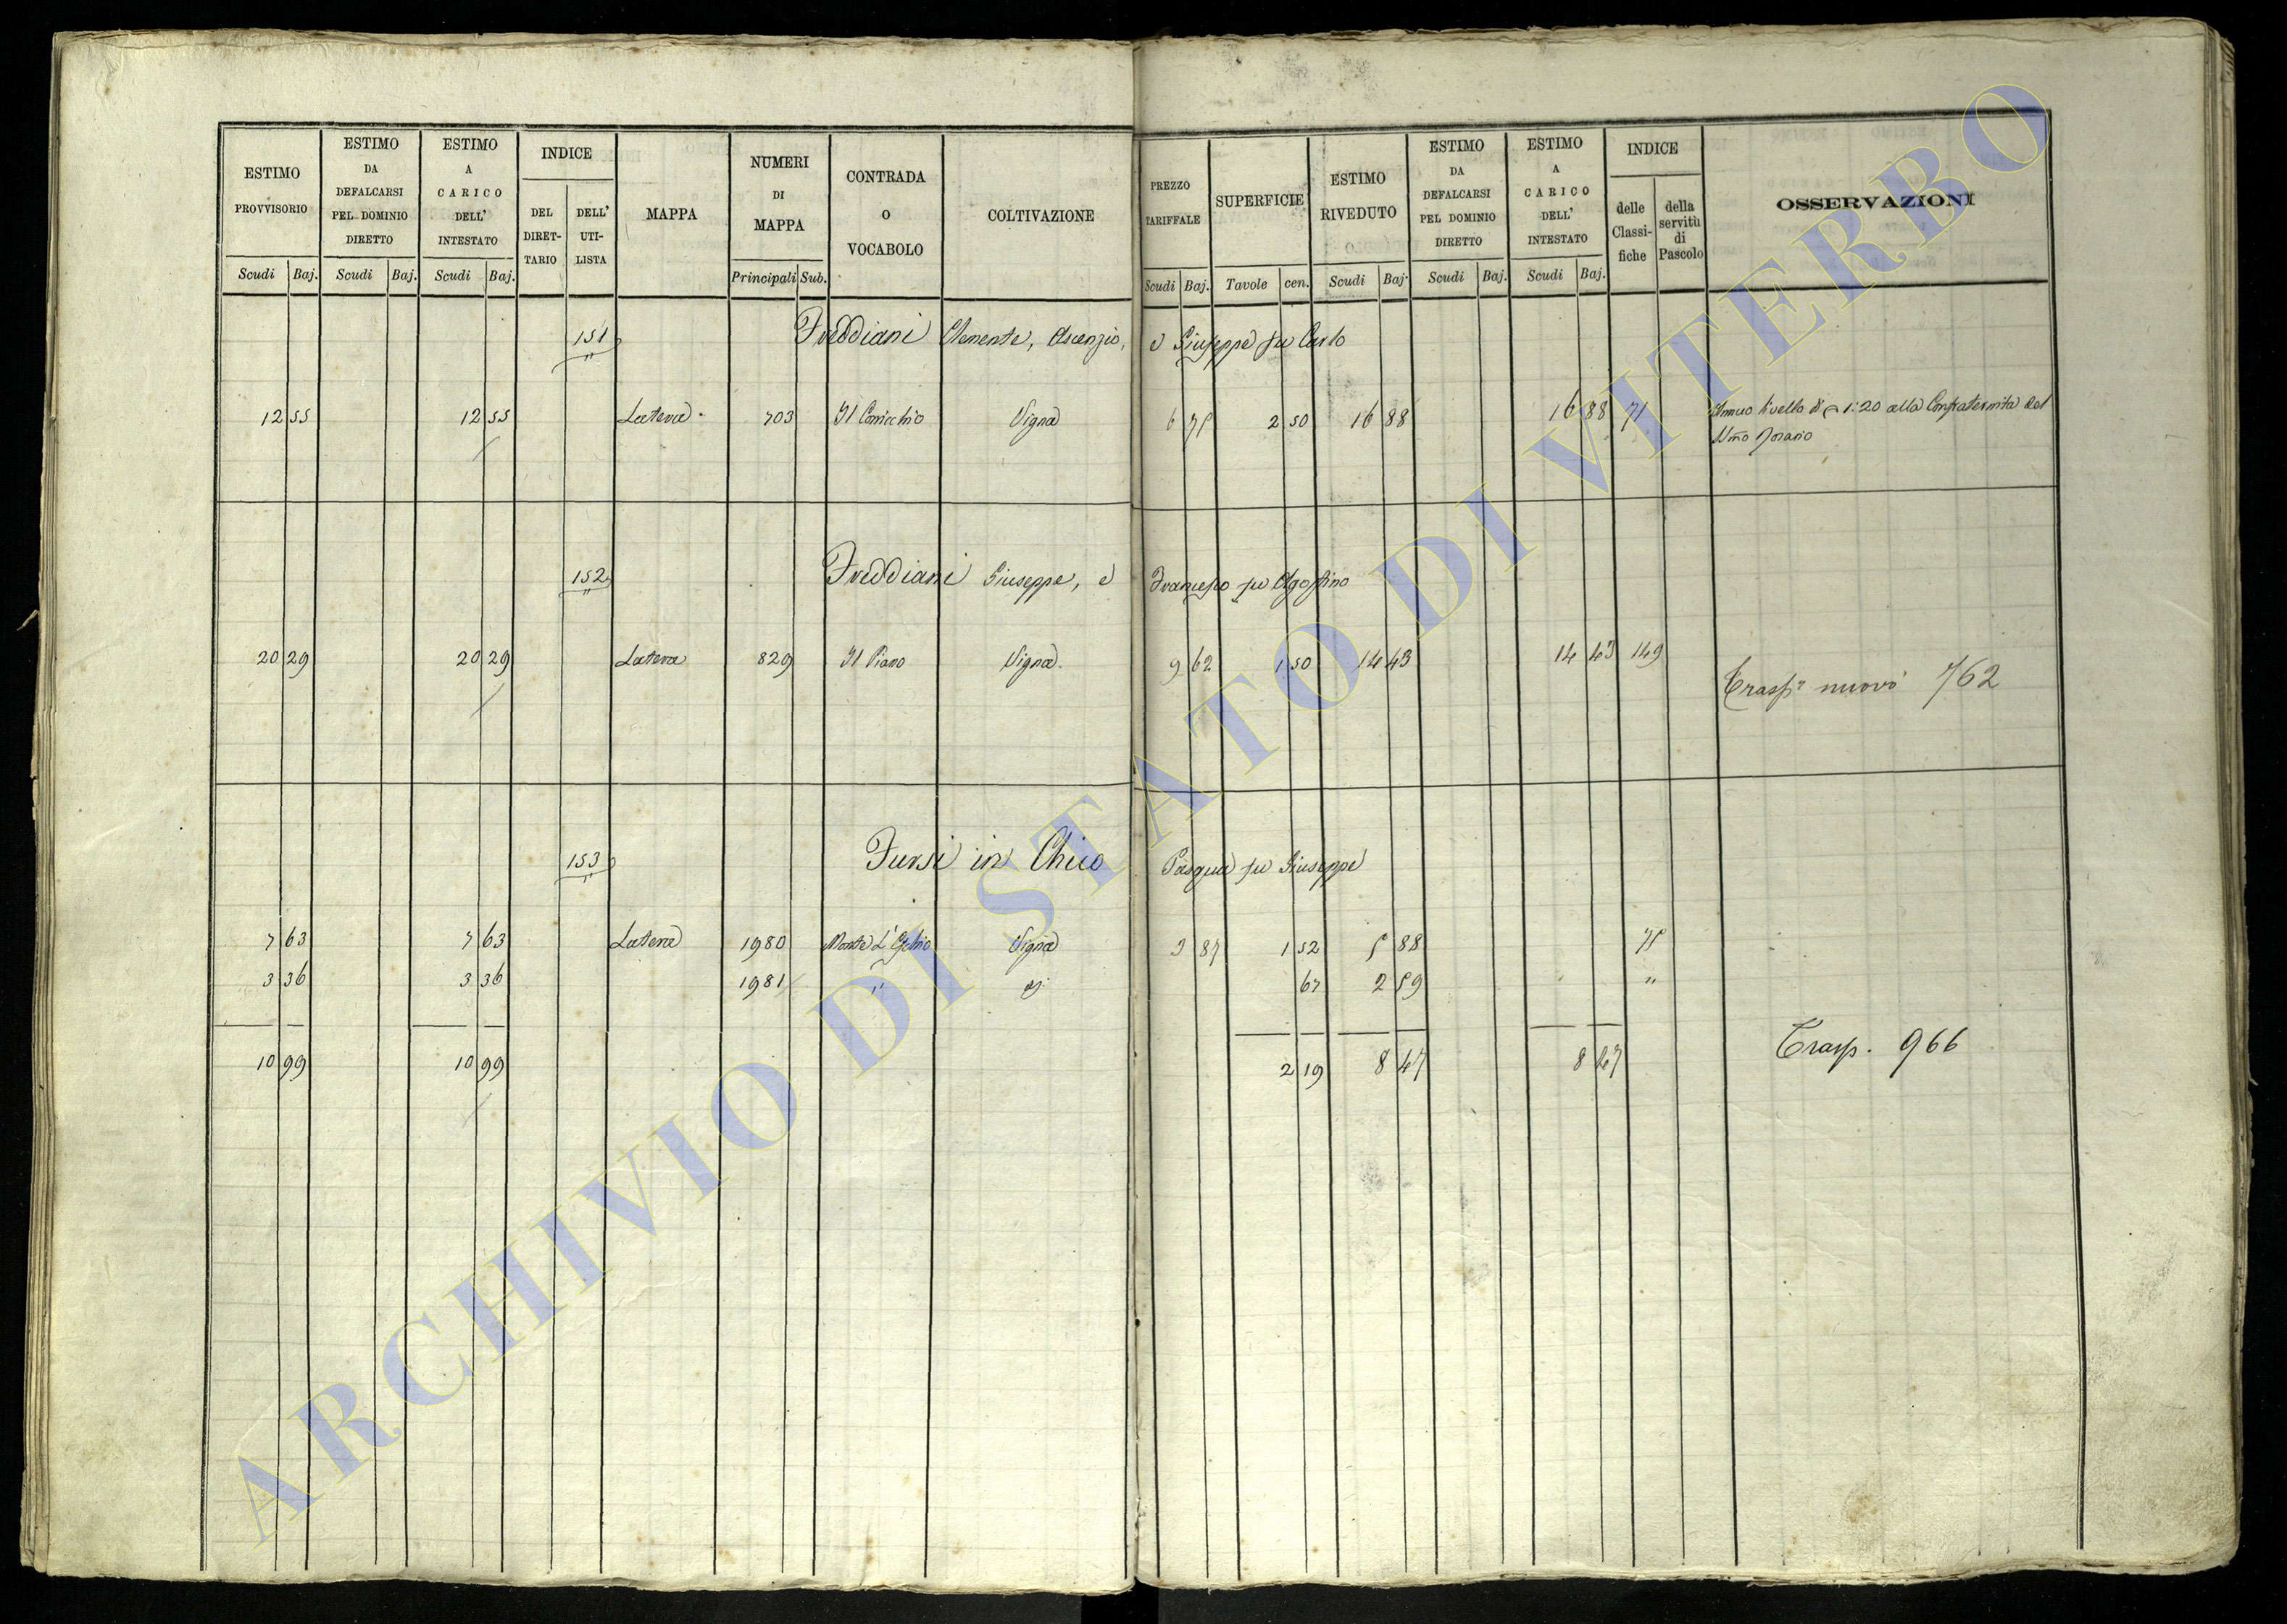 ESTIMO PROVVISORIO
Scudi Baj.
ESTIMO DA DEFALCARSI PEL DOMINIO DIRETTO
Scudi Baj.
ESTIMO A CARICO DELL' INTESTATO
Scudi Baj.
INDICE
DEL DIRET-TARIO
DELL' UTI-LISTA
MAPPA
NUMERI DI MAPPA
Principali Sub.
CONTRADA O VOCABOLO
COLTIVAZIONE
PREZZO TARIFFALE
Scudi Baj.
SUPERFICIE
Tavole cen.
ESTIMO RIVEDUTO
Scudi Baj.
ESTIMO DA DEFALCARSI PEL DOMINIO DIRETTO
Scudi Baj.
ESTIMO A CARICO DELL' INTESTATO
Scudi Baj.
INDICE
delle Classi-fiche
della servitù di Pascolo
OSSERVAZIONI
151 Freddiani Clemente, Ascenzio, e Giuseppe fu Carlo
12 55 12 55 Latera 703 Il Vigna 6 75 2 50 16 88 16 88 71 Annuo livello di 1:20 alla Confraternita del
SSmo Rosario
152 Freddiani Giuseppe, e Francesco fu Agostino
20 29 20 29 Latera 829 Il Piano Vigna 9 62 1 50 14 43 14 43 149
Trasp. nuovo 762
153 Fursi in Chico Pasqua fu Giuseppe
7 63 7 63 Latera 1980 Monte Vigna 3 87 1 52 5 88 75
3 36 3 36 1981 " 67 2 59 "
10 99 10 99 2 19 8 47 8 47
Trasp. 966
ARCHIVIO DI STATO DI VITERBO